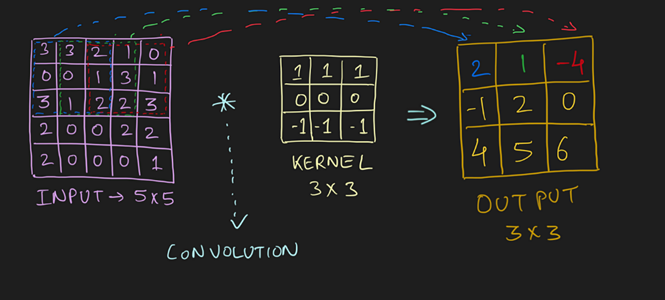 3 3 2 1 0
0 0 1 3 1
3 1 2 2 3
2 0 0 2 2
2 0 0 0 1
INPUT → 5X5
*
CONVOLUTION
1 1 1
0 0 0
-1 -1 -1
KERNEL
3 X 3
⇒
2 1 -4
-1 2 0
4 5 6
OUTPUT
3 X 3